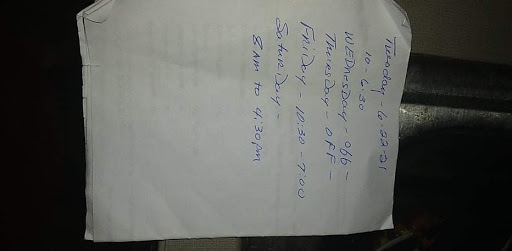 Tuesday - 6-22-21
10 - 6:30
WEDnesDay - off -
ThursDay - OFF -
FriDay - 10:30 - 7:00
SaturDay -
8 Am to 4:30 pm